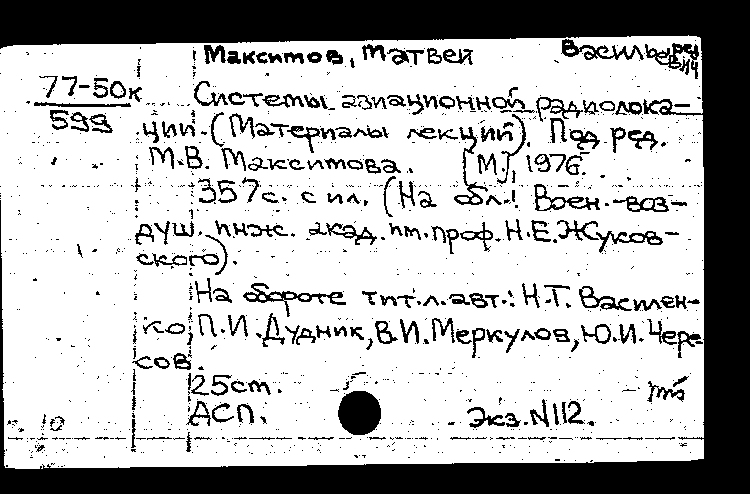 Максимов, Матвей Васильевич ред
77-50к Системы авиационной радиолока-
599 ции. (Материалы лекций). Под ред.
М.В. Максимова. [М.], 1976.
357с. с ил. (На обл.: Воен.-воз-
душ. инж. акад. им. проф. Н.Е. Жуков-
ского).
На обороте тит. л. авт.: Н.Т. Василен-
ко, П.И. Дудник, В.И. Меркулов, Ю.И. Чере
сов.
25см.
10 АСП. Экз. N112.